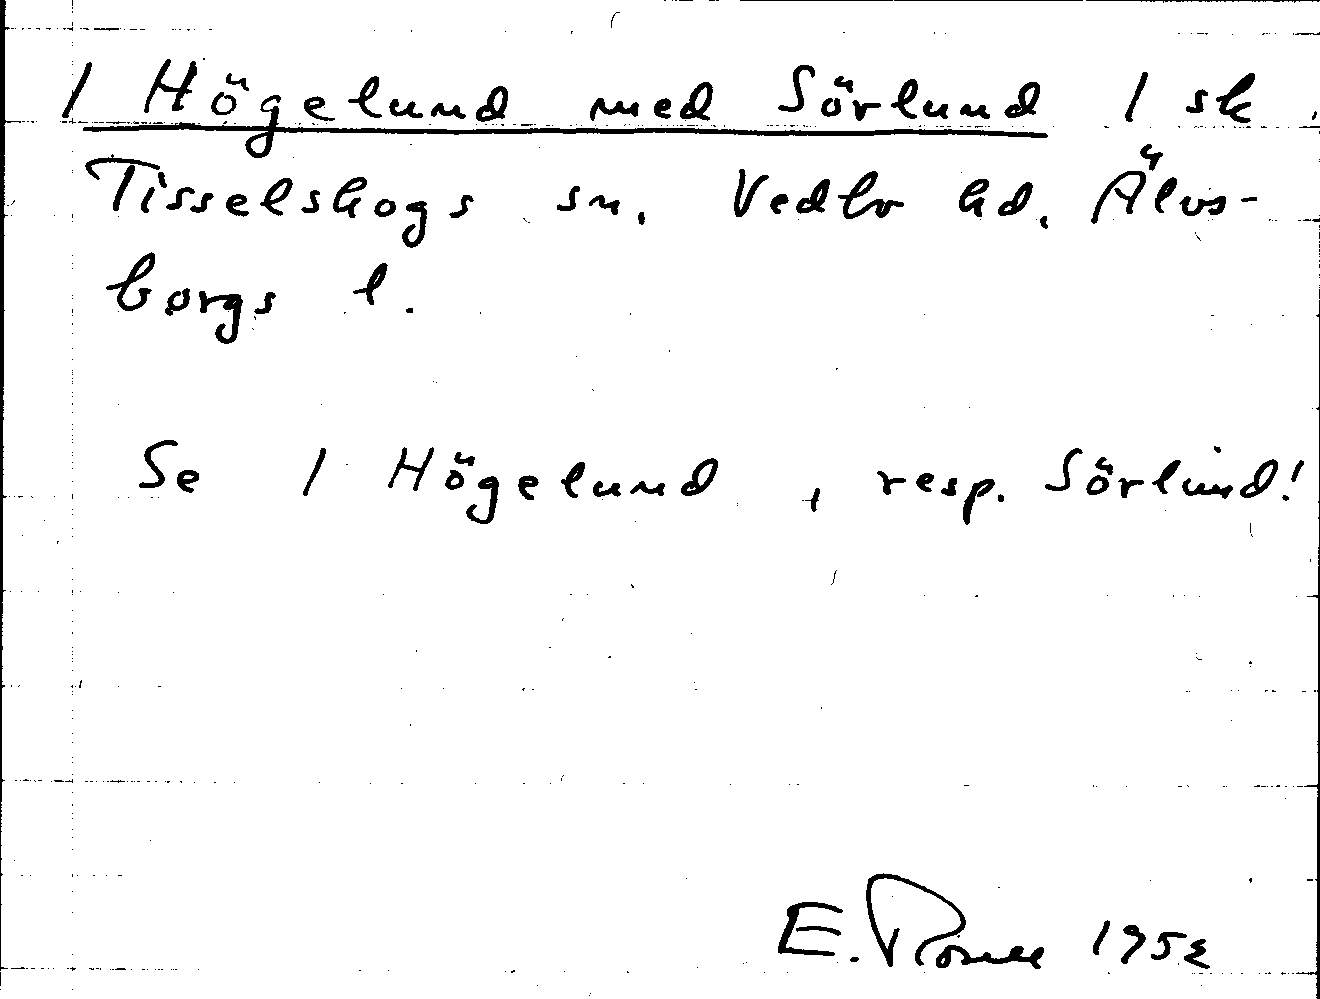 1 Högelund med Sörlund 1 sk
Tisselskogs sn. Vedbo hd. Älvs-
borgs l.
Se 1 Högelund, resp. Sörlund!
E. 1952